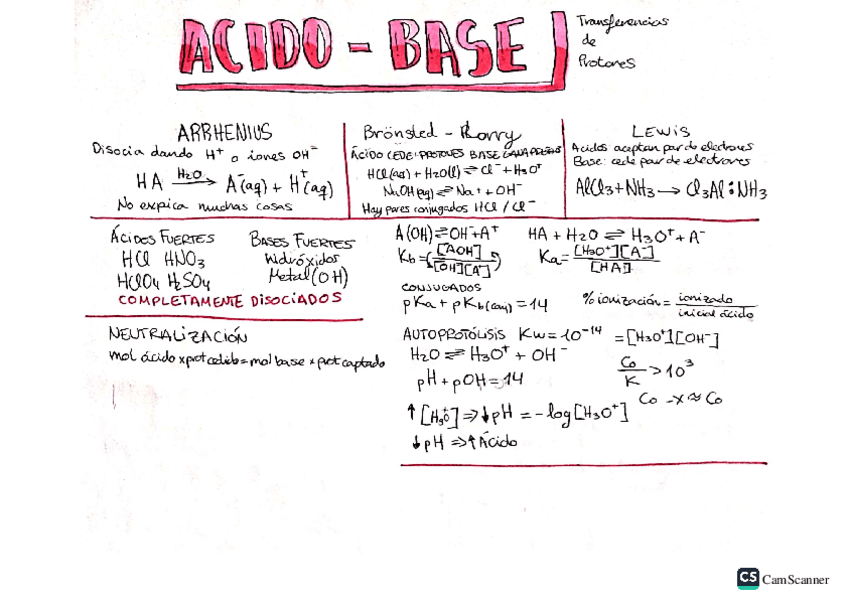 ACIDO - BASE
Transferencias
de
Protones
ARRHENIUS
Disocia dando H⁺ o iones OH⁻
HA →(H₂O) A⁻(aq) + H⁺(aq)
No explica muchas cosas
Brönsted - Lowry
ÁCIDO CEDE PROTONES BASE GANA PROTONES
HCl(aq) + H₂O(l) ⇌ Cl⁻ + H₃O⁺
NaOH(aq) ⇌ Na⁺ + OH⁻
Hay pares conjugados HCl / Cl⁻
LEWIS
Acidos aceptan par de electrones
Base: cede par de electrones
AlCl₃ + NH₃ → Cl₃Al : NH₃
ÁCIDES FUERTES
HCl HNO₃
HClO₄ H₂SO₄
BASES FUERTES
Hidróxidos
Metal(OH)
COMPLETAMENTE DISOCIADOS
NEUTRALIZACIÓN
mol ácido x prot cedido = mol base x prot captado
A(OH) ⇌ OH⁻ + A⁺
Kb = [AOH] / [OH][A⁻]
HA + H₂O ⇌ H₃O⁺ + A⁻
Ka = [H₃O⁺][A⁻] / [HA]
CONJUGADOS
pKa + pKb(conj) = 14
% ionización = ionizado / inicial ácido
AUTOPROTÓLISIS Kw = 10⁻¹⁴ = [H₃O⁺][OH⁻]
H₂O ⇌ H₃O⁺ + OH⁻
pH + pOH = 14
Co / K > 10³
Co - x ≈ Co
↑ [H₃O⁺] ⇒ ↓ pH = -log [H₃O⁺]
↓ pH ⇒ ↑ Ácido
CS CamScanner